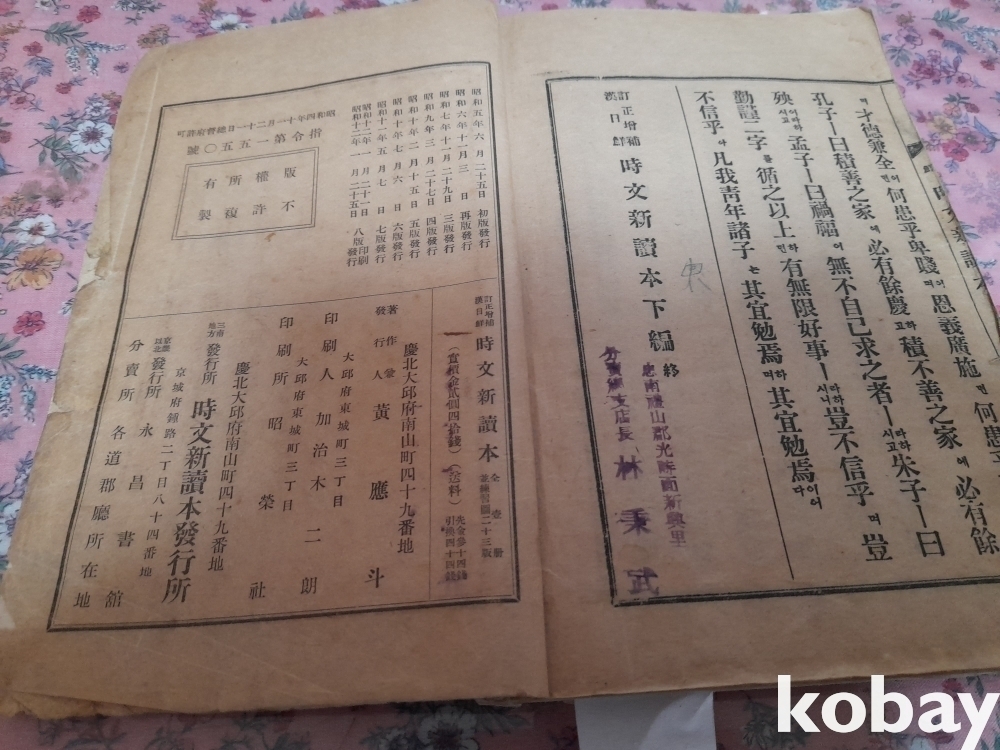 才德兼全 何患乎卑賤 恩義廣施 何患
孔子ㅣ曰積善之家에必有餘慶하고積不善之家에必有餘
殃이라하시고孟子ㅣ曰禍福이無不自己求之者ㅣ라하시고朱子ㅣ曰
勤謹二字를循之以上 有無限好事ㅣ라하시니豈不信乎며豈
不信乎 凡我靑年諸子는其宜勉焉하며其宜勉焉이어다
訂正增補
漢日鮮
時文新讀本下編 終
忠南禮山郡光時面新興里
支店長 林秉武
昭和五年六月二十五日 初版發行
昭和六年十一月三日 再版發行
昭和七年十二月二十九日 三版發行
昭和九年三月二十七日 四版發行
昭和十年二月十五日 五版發行
昭和十年七月六日 六版發行
昭和十一年五月七日 七版發行
昭和十二年一月二十一日 八版印刷
昭和十二年一月二十五日 八版發行
昭和四年十一月二十一日總督府許可
指令第一五五〇號
版權所有
不許複製
訂正增補
漢日鮮
時文新讀本 全壹册
(實價金貳圓四拾錢)(送料)
先金參十四錢
引換四十四錢
慶北大邱府南山町四十九番地
著作兼
發行人 黃應斗
大邱府東城町三丁目
印刷人 加治木二朗
大邱府東城町三丁目
印刷所 昭榮社
慶北大邱府南山町四十九番地
三南地方 發行所 時文新讀本發行所
京城府鍾路二丁目八十四番地
京畿以北 發行所 永昌書舘
分賣所 各道郡廳所在地
kobay